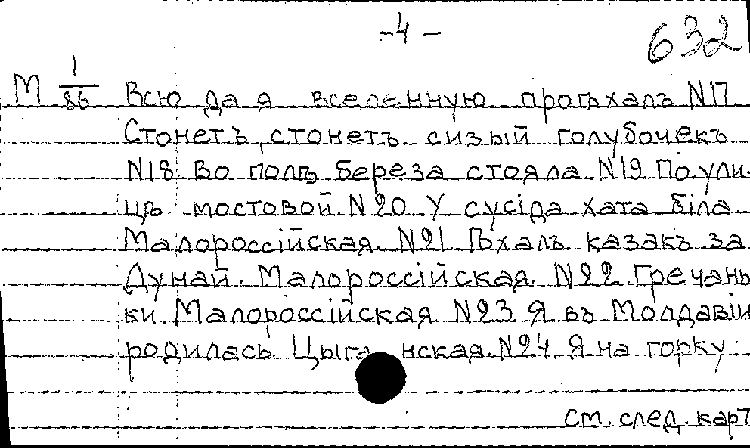 -4-
632
М 1/86 Всю да я вселенную проѣхалъ N17
Стонетъ, стонетъ сизый голубочекъ
N18 Во полѣ береза стояла N19 По ули
цѣ мостовой N20 У сусіда хата біла
Малороссійская. N21 Ѣхалъ казакъ за
Дунай. Малороссійская N22 Гречань
ки Малороссійская N23 Я въ Молдавіи
родилась Цыганская N24 Я на горку
см. след. карт